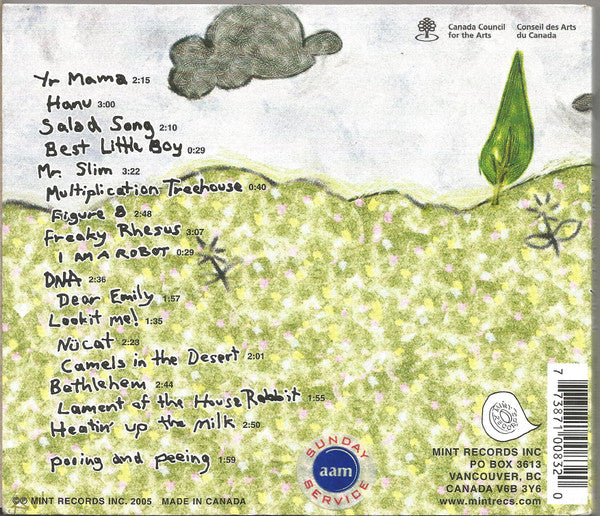 Canada Council
for the Arts
Conseil des Arts
du Canada
Yr Mama 2:15
Hanu 3:00
Salad Song 2:10
Best Little Boy 0:29
Mr. Slim 3:22
Multiplication Treehouse 0:40
Figure 8 2:48
Freaky Rhesus 3:07
I AM A ROBOT 0:29
DNA 2:36
Dear Emily 1:57
Lookit me! 1:35
Nücat 2:23
Camels in the Desert 2:01
Bathlehem 2:44
Lament of the House Rabbit 1:55
Heatin' up the Milk 2:50
pooing and peeing 1:59
SUNDAY
aam
SERVICE
MINT RECORDS INC
PO BOX 3613
VANCOUVER, BC
CANADA V6B 3Y6
www.mintrecs.com
7 73871 00832 0
©℗ MINT RECORDS INC. 2005 MADE IN CANADA